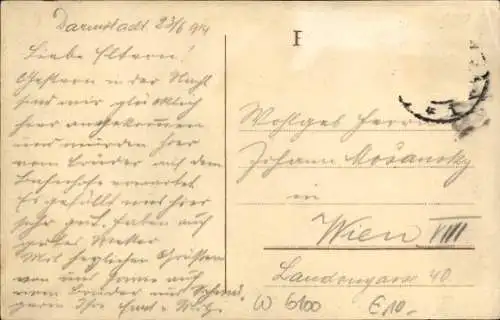 Darmstadt 23/6 1914
Liebe Eltern!
Gestern in der Nacht
sind wir glücklich
hier angekommen
und wurden hier
vom Bruder auf dem
Bahnhofe erwartet.
Es gefällt uns hier
sehr gut. Haben auch
gutes Wetter
Mit herzlichen Grüssen
von uns
vom Bruder und
Ihre Emil
P
Wohlgeb Herrn
Johann Mošansky
in
Wien VIII
Landongasse 40
W 6100 E 10.-